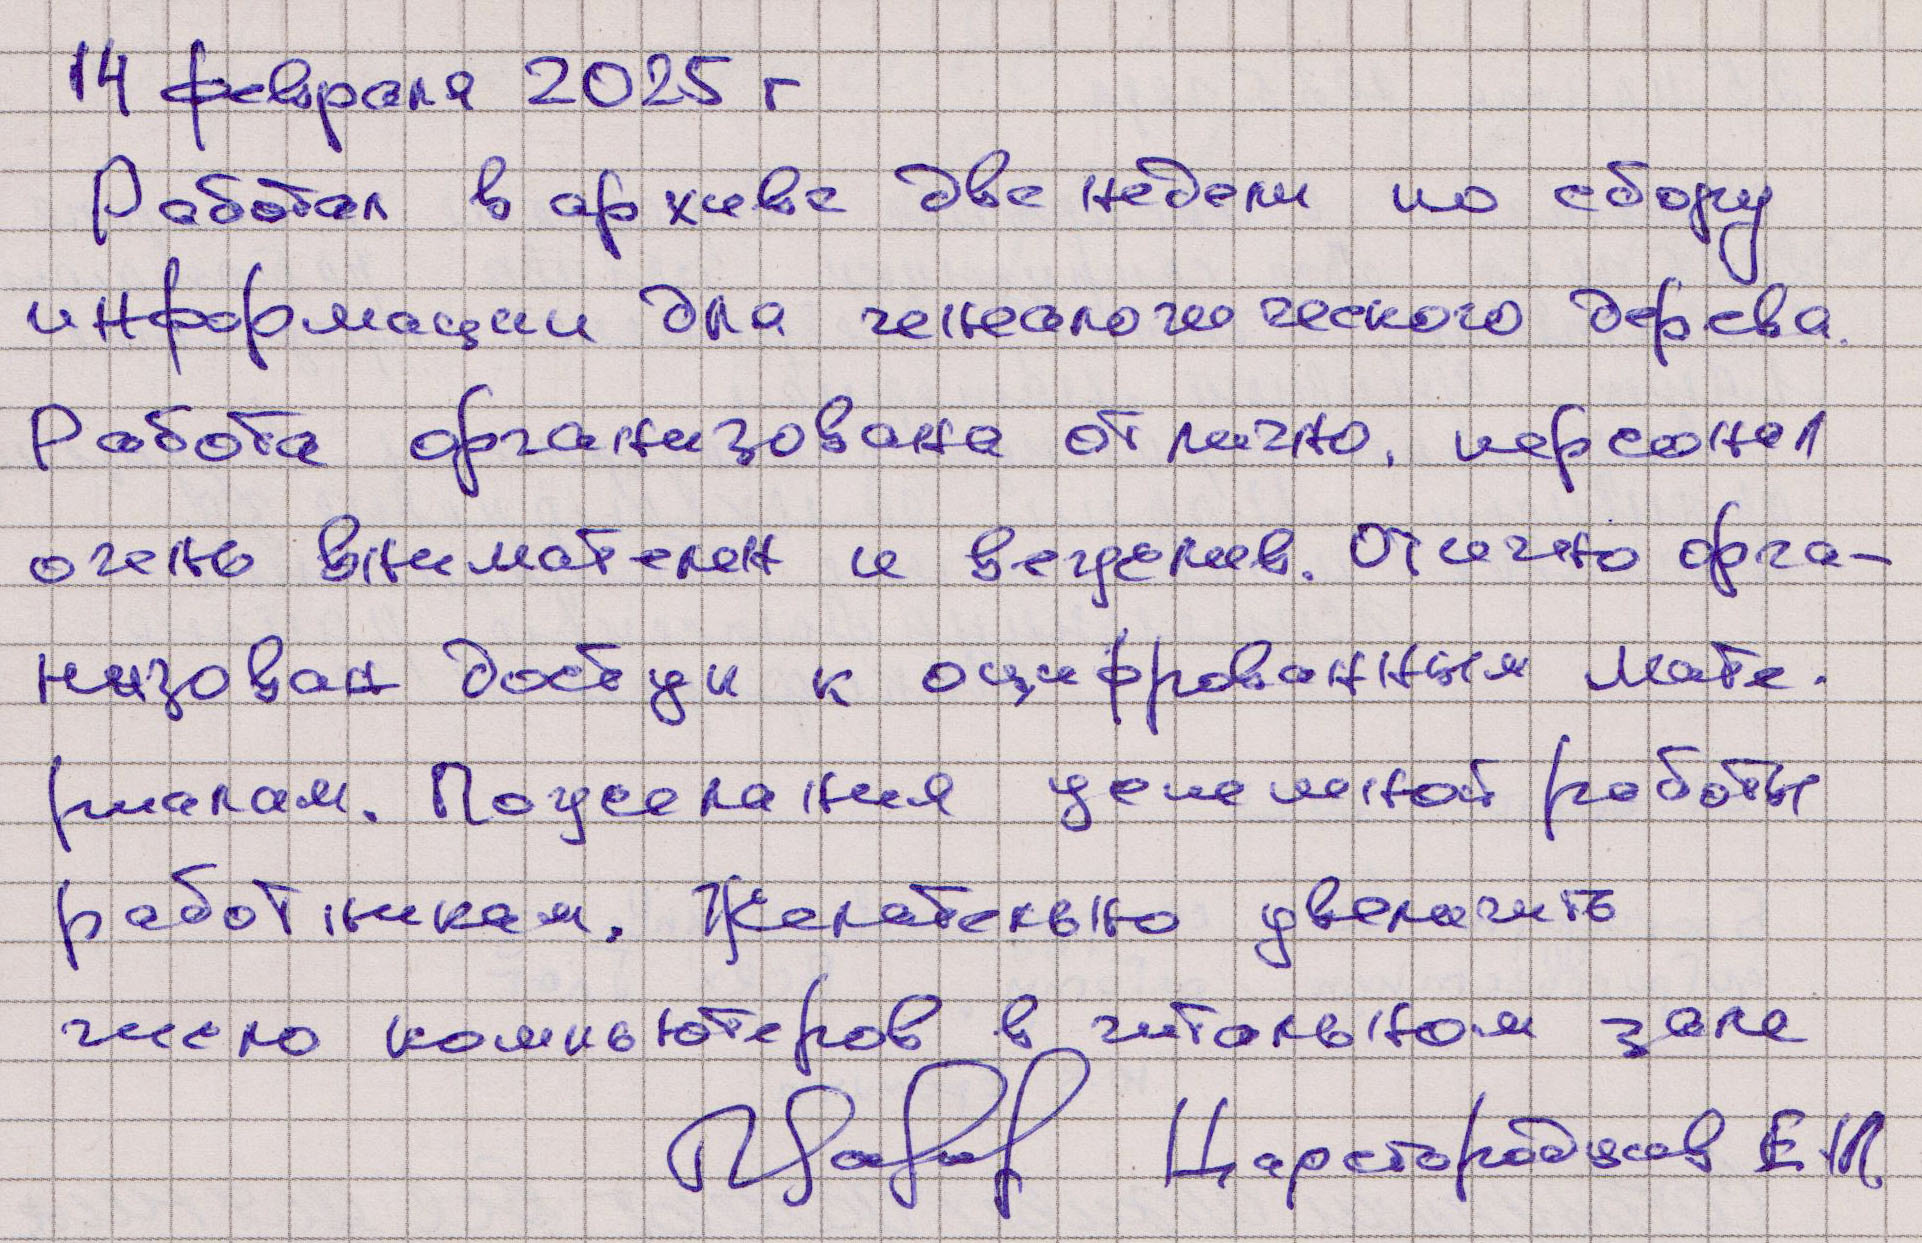 14 февраля 2025 г
Работал в архиве две недели по сбору
информации для генеалогического дерева.
Работа организована отлично, персонал
очень внимателен и вежлив. Отлично орга-
низован доступ к оцифрованным мате-
риалам. Пожелания успешной работы
работникам. Желательно увеличить
число компьютеров в читальном зале
Царегородцев Е.И